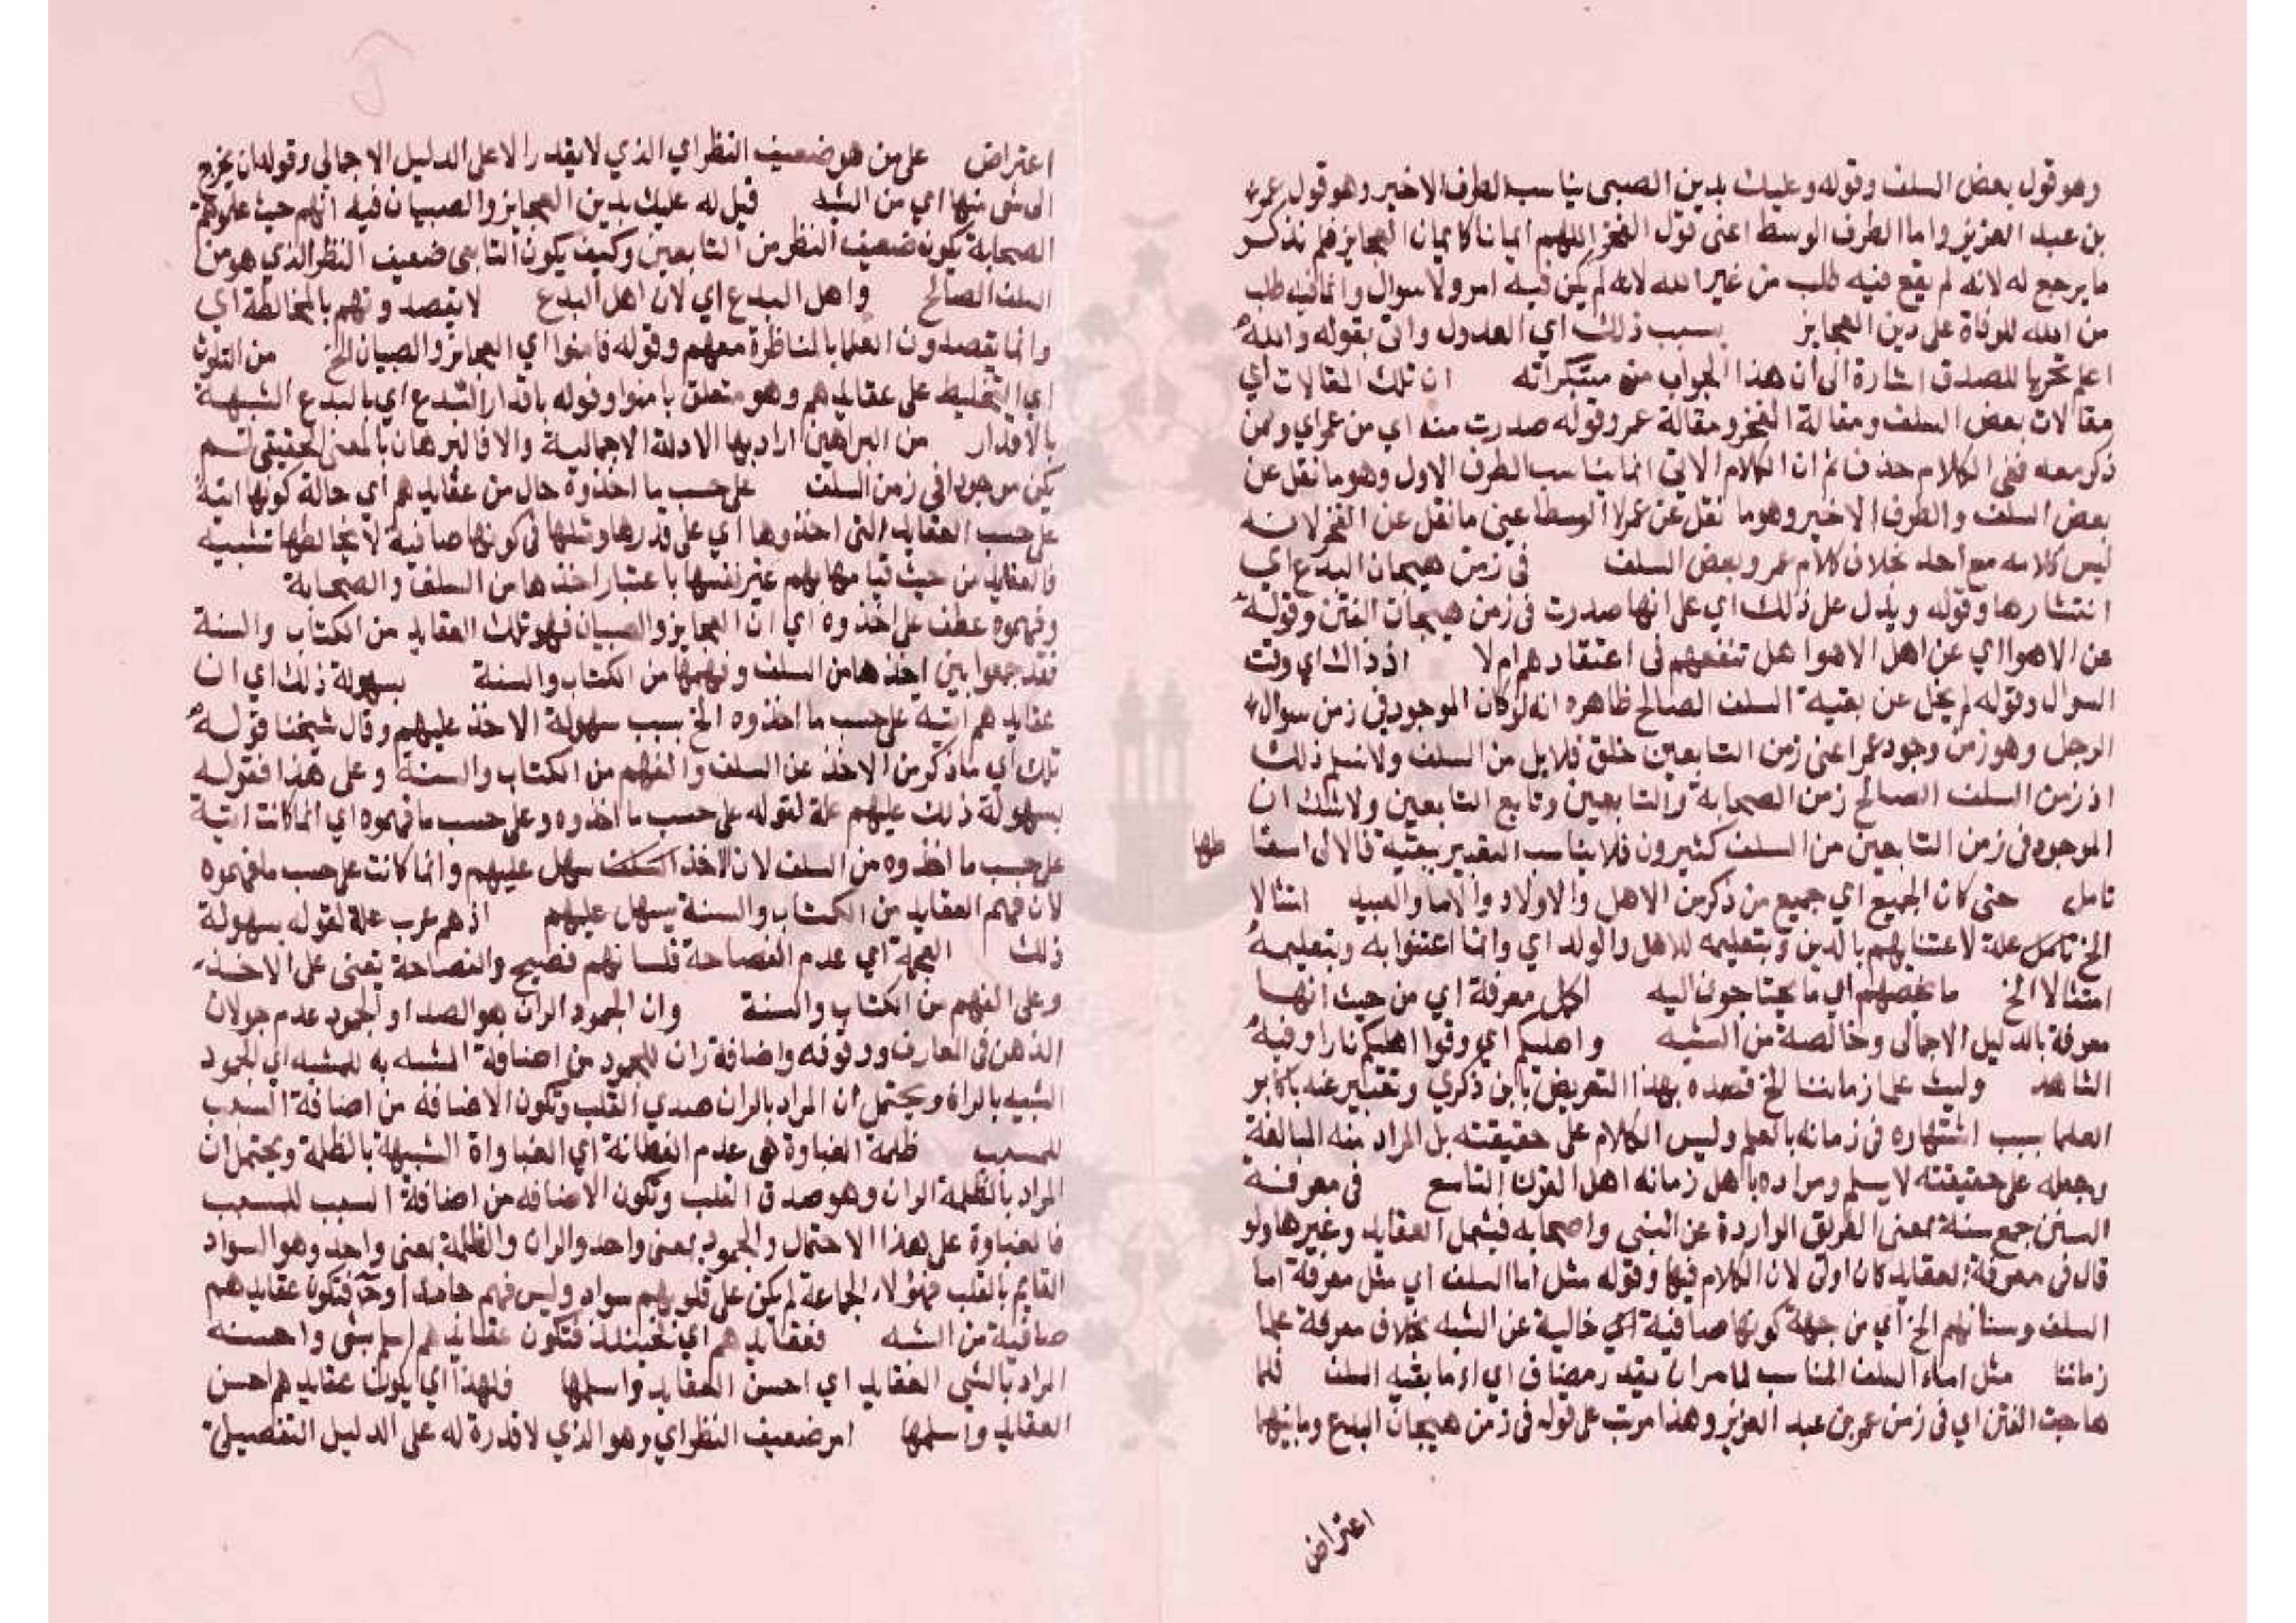 وهو قول بعض السلف وقوله وعليك بدين الصبى يناسب الطرف الاخير وهو قول عمر
بن عبد العزيز واما الطرف الوسط اعنى قول الفخر اللهم ايمانا كايمان العجايز فلم يذكر
ما يرجع له لانه لم يقع فيه طلب من غير الله لانه لم يكن فيه امر ولا سوال وانما فيه طلب
من الله للوفاة على دين العجايز بسبب ذلك اي العدول واتى بقوله والله
اعلم تحريا للصدق اشارة الى ان هذا الجواب من مبتكراته ان تلك المقالات اي
مقالات بعض السلف ومقالة الفخر ومقالة عمر وقوله صدرت منه اي من عمر اي وممن
ذكر معه ففى الكلام حذف ثم ان الكلام الاتى انما يناسب الطرف الاول وهو ما نقل عن
بعض السلف والطرف الاخير وهو ما نقل عن عمر لا الوسط اعنى ما نقل عن الفخر لانه
ليس كلامه مع احد بخلاف كلام عمر وبعض السلف فى زمن هيجان البدع اي
انتشارها وقوله ويدل على ذلك اي على انها صدرت فى زمن هيجان الفتن وقوله
عن الاهوا اي عن اهل الاهوا هل تنفعهم فى اعتقادهم ام لا اذ ذاك اي وقت
السوال وقوله لم يخل عن بقية السلف الصالح ظاهره انه لو كان الموجود فى زمن سوال
الرجل وهو زمن وجود عمر اعنى زمن التابعين خلق قلايل من السلف ولا نسلم ذلك
اذ زمن السلف الصالح زمن الصحابة والتابعين وتابع التابعين ولا شك ان
الموجود فى زمن التابعين من السلف كثيرون فلا يناسب التعبير ببقية فالاولى اسقاطها
تامل حتى كان الجميع اي جميع من ذكر من الاهل والاولاد والاما والعبيد امتثالا
الخ علة لاعتنايهم بالدين وبتعليمه للاهل والولد اي وانما اعتنوا به وبتعليمه
امتثالا الخ ما يخصهم اي ما يحتاجون اليه اكمل معرفة اي من حيث انها
معرفة بالدليل الاجمالى وخالصة من الشبه واهليكم اي وقوا اهليكم نارا وفيه
الشاهد وليت علما زماننا الخ قصده بهذا التعريض بابن ذكري وتعبيره عنه باكابر
العلما بسبب اشتهاره فى زمانه بالعلم وليس الكلام على حقيقته بل المراد منه المبالغة
وجعله على حقيقته لا يسلم ومراده باهل زمانه اهل القرن التاسع فى معرفة
السنن جمع سنة بمعنى الطريق الواردة عن النبى واصحابه فيشمل العقايد وغيرها ولو
قال فى معرفة العقايد كان اولى لان الكلام فيها وقوله مثل اما السلف اي مثل معرفة اما
السلف وسنانهم الخ اي من جهة كونها صافية اي خالية عن الشبه بخلاف معرفة علما
زماننا مثل اماء السلف المناسب لما مر ان يقدر مضاف اي اما بقية السلف فلما
هاجت الفتن اي فى زمن عمر بن عبد العزيز وهذا مرتب على قوله فى زمن هيجان البدع وما بينهما
اعتراض
اعتراض على من هو ضعيف النظر اي الذي لا يقدر الا على الدليل الاجمالى وقوله ان يخرج
الى شى منها اي من الشبه قيل له عليك بدين العجايز والصبيان فيه انهم حيث علموهم
الصحابة يكون ضعيف النظر من التابعين وكيف يكون التابعى ضعيف النظر الذي هو من
السلف الصالح واهل البدع اي لان اهل البدع لا يقصدونهم بالمخالطة اي
وانما يقصدون العلما بالمناظرة معهم وقوله فامنوا اي العجايز والصبيان الخ من التلوث
اي التخليط على عقايدهم وهو متعلق بامنوا وقوله باقذار البدع اي بالبدع الشبيهة
بالاقذار من البراهين اراد بها الادلة الاجمالية والا فالبرهان بالمعنى الحقيقى لم
يكن موجودا فى زمن السلف على حسب ما اخذوه حال من عقايدهم اي حالة كونها اتية
على حسب العقايد التى اخذوها اي على قدرها ومثلها فى كونها صافية لا يخالطها تشبيه
فالعقايد من حيث قيامها بهم غير نفسها باعتبار اخذها من السلف والصحابة
وفهموه عطف على اخذوه اي ان العجايز والصبيان فهموا تلك العقايد من الكتاب والسنة
فقد جمعوا بين اخذها من السلف وفهمها من الكتاب والسنة بسهولة ذلك اي ان
عقايدهم اتية على حسب ما اخذوه الخ بسبب سهولة الاخذ عليهم وقال شيخنا قوله
تلك اي ما ذكر من الاخذ عن السلف والفهم من الكتاب والسنة وعلى هذا فقوله
بسهولة ذلك عليهم علة لقوله على حسب ما اخذوه وعلى حسب ما فهموه اي انما كانت اتية
على حسب ما اخذوه من السلف لان الاخذ سهل عليهم وانما كانت على حسب ما فهموه
لان فهم العقايد من الكتاب والسنة يسهل عليهم اذ هم عرب علة لقوله بسهولة
ذلك العجمة اي عدم الفصاحة فلسانهم فصيح والفصاحة تعنى على الاخذ
وعلى الفهم من الكتاب والسنة وان الجمود الران هو الصدا والجمود عدم جولان
الذهن فى المعارف ووقوفه واضافة ران للجمود من اضافة المشبه به للمشبه اي الجمود
الشبيه بالران ويحتمل ان المراد بالران صدى القلب وتكون الاضافة من اضافة السبب
للمسبب ظلمة الغباوة هى عدم الفطانة اي الغباواة الشبيهة بالظلمة ويحتمل ان
المراد بالظلمة الران وهو صدق القلب وتكون الاضافه من اضافة السبب للمسبب
فالغباوة على هذا الاحتمال والجمود بمعنى واحد والران والظلمة بمعنى واحد وهو السواد
القايم بالقلب فهؤلاء الجماعة لم يكن على قلوبهم سواد وليس فيهم جامدا وح فتكون عقايدهم
صافية من الشبه فعقايدهم اي فحينئذ فتكون عقايدهم اسلم شى واحسنه
المراد بالشى العقايد اي احسن العقايد واسلمها فلهذا اي يكون عقايدهم احسن
العقايد واسلمها امر ضعيف النظر اي وهو الذي لا قدرة له على الدليل التفصيلى